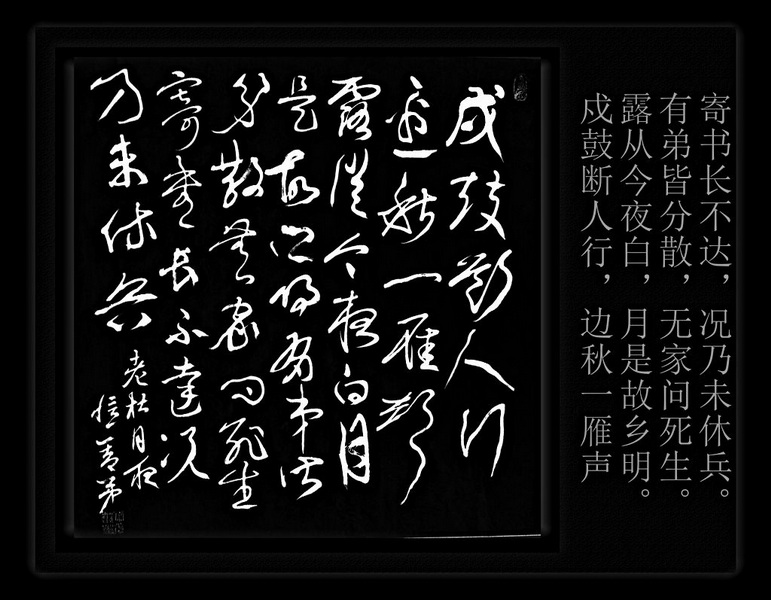 戍鼓斷人行
邊秋一雁聲
露從今夜白月
是故鄉明有弟皆
分散無家問死生
寄書長不達況
乃未休兵
老杜月夜
憶舍弟
戍鼓断人行，边秋一雁声
露从今夜白，月是故乡明。
有弟皆分散，无家问死生。
寄书长不达，况乃未休兵。